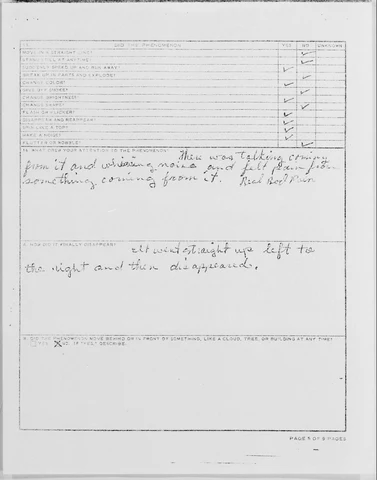 DID THE PHENOMENON YES NO UNKNOWN
MOVE IN A STRAIGHT LINE?
STAND STILL AT ANYTIME?
SUDDENLY SPEED UP AND RUN AWAY?
BREAK UP IN PARTS AND EXPLODE?
CHANGE COLOR?
GIVE OFF SMOKE?
CHANGE BRIGHTNESS?
CHANGE SHAPE?
FLASH OR FLICKER?
DISAPPEAR AND REAPPEAR?
SPIN LIKE A TOP?
MAKE A NOISE?
FLUTTER OR WOBBLE?
WHAT DREW YOUR ATTENTION TO THE PHENOMENON?
There was talking coming
from it and noise and felt pain from
something coming from it. Real Bad Pain
HOW DID IT FINALLY DISAPPEAR?
It went straight up left to
the right and then disappeared.
DID THE PHENOMENON MOVE BEHIND OR IN FRONT OF SOMETHING, LIKE A CLOUD, TREE, OR BUILDING AT ANY TIME?
YES NO. IF DESCRIBE.
PAGE 5 OF 8 PAGES